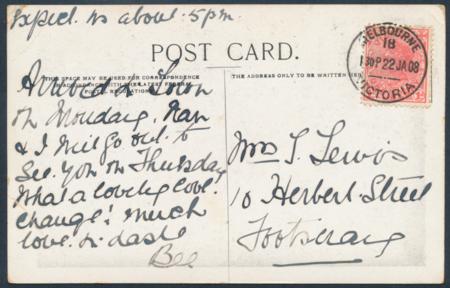 Expect us about 5pm.
POST CARD.
THIS SPACE MAY BE USED FOR CORRESPONDENCE
THE ADDRESS ONLY TO BE WRITTEN
MELBOURNE
18
130P 22 JA 08
VICTORIA
Arrived in Town
on Monday. Nan
& I will go out to
see you on Thursday
What a lovely cool
change! Much
love. In dash
Bee
Mrs T. Lewis
10 Herbert Street
Footscray